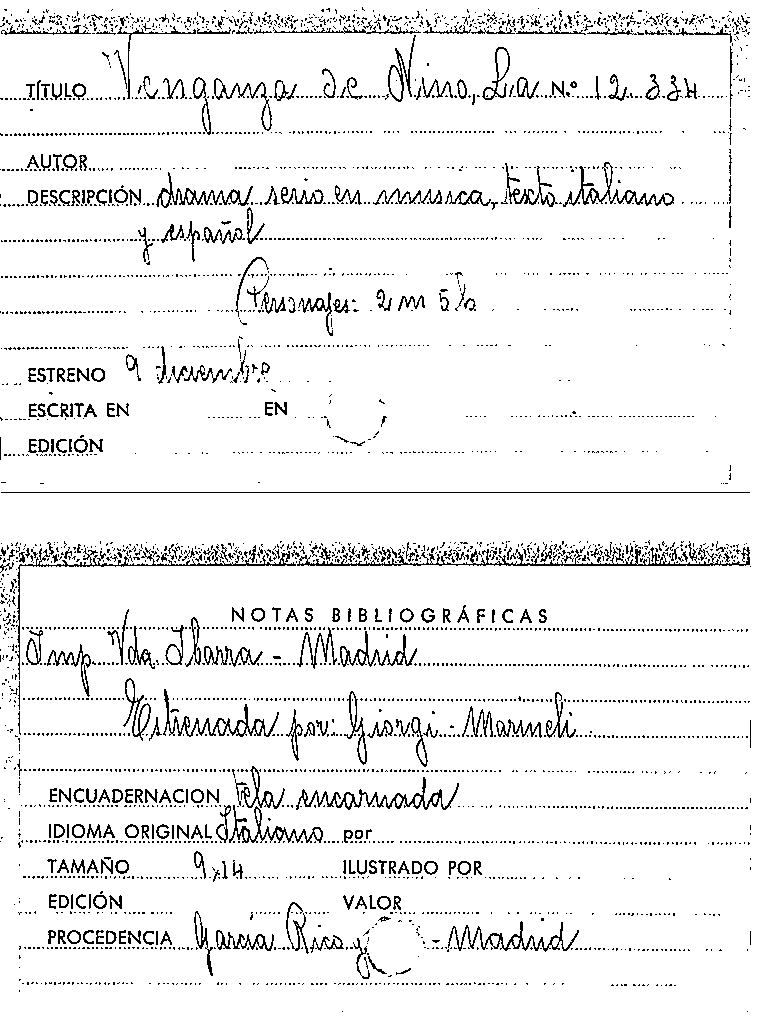 TÍTULO Venganza de Nino, La N.º 12.334
AUTOR
DESCRIPCIÓN drama serio en musica, texto italiano
y español
Personajes: 2 m 5 h
ESTRENO 9 diciembre
ESCRITA EN EN
EDICIÓN
NOTAS BIBLIOGRÁFICAS
Imp. Vda Ibarra - Madrid
Estrenada por: Giorgi - Marineli
ENCUADERNACION tela encarnada
IDIOMA ORIGINAL Italiano por
TAMAÑO 9x14 ILUSTRADO POR
EDICIÓN VALOR
PROCEDENCIA García Rico y - Madrid